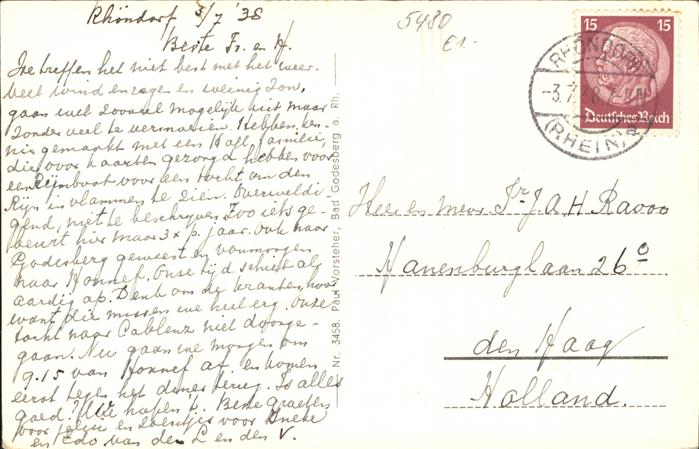 Rhöndorf 3/7 '38
Beste Fr. en H.
We treffen het niet best met het weer.
Veel wind en regen en weinig zon,
gaan wel zooveel mogelijk uit maar
zonder veel te vermoeien. Hebben ken-
nis gemaakt met een Holl. familie,
die voor kaarten gezorgd hebben voor
een Rijnboot voor een tocht om den
Rijn in vlammen te zien. Overweldi
gend, niet te beschrijven. Zoo iets ge-
beurt hier maar 3x p. jaar. Ook naar
Godesberg geweest en vanmorgen
naar Honnef. Onze tijd schiet al
aardig op. Denk om de kranten, hoor
want die missen we heel erg. Onze
tocht naar Coblenz niet doorge-
gaan. Nu gaan we morgen om
9.15 van Honnef af en komen
eerst tegen het diner terug. Is alles
goed? We hopen 't. Beste groeten
voor jullie en zoentjes voor Ineke
en Edo van de L en den V.
5480
£1-
Nr. 3458. Paul Vorsteher, Bad Godesberg a. Rh.
15 15
Deutsches Reich
RHÖNDORF
(RHEIN)
Heer en mevr J.A.H. Ravoo
Hanenburglaan 26°
den Haag
Holland.